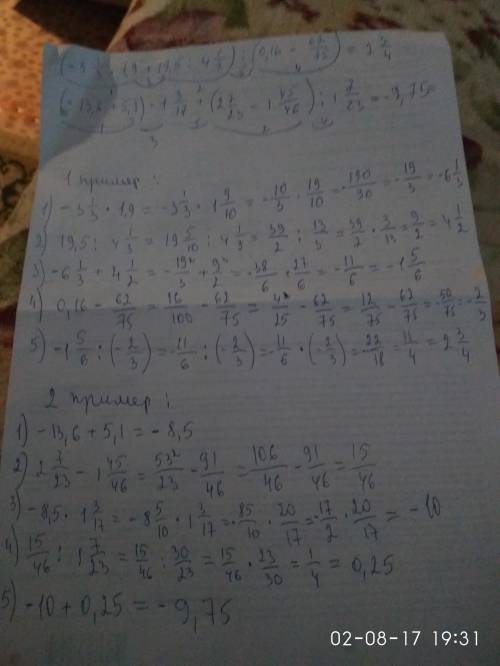 (-3 1/3 · 1,9 + 19,5 : 4 1/3) : (0,16 - 62/75) = 2 3/4
(-13,6 + 5,1) · 1 3/17 + (2 7/23 - 1 45/46) : 1 7/23 = -9,75
1 пример:
1) -3 1/3 · 1,9 = -3 1/3 · 1 9/10 = -10/3 · 19/10 = -190/30 = -19/3 = -6 1/3
2) 19,5 : 4 1/3 = 19 5/10 : 4 1/3 = 39/2 : 13/3 = 39/2 · 3/13 = 9/2 = 4 1/2
3) -6 1/3 + 4 1/2 = -19/3 + 9/2 = -38/6 + 27/6 = -11/6 = -1 5/6
4) 0,16 - 62/75 = 16/100 - 62/75 = 4/25 - 62/75 = 12/75 - 62/75 = 50/75 = -2/3
5) -1 5/6 : (-2/3) = -11/6 : (-2/3) = -11/6 · (-2/3) = -22/18 = 11/4 = 2 3/4
2 пример:
1) -13,6 + 5,1 = -8,5
2) 2 7/23 - 1 45/46 = 53²/23 - 91/46 = 106/46 - 91/46 = 15/46
3) -8,5 · 1 3/17 = -8 5/10 · 1 3/17 = -85/10 · 20/17 = -17/2 · 20/17 = -10
4) 15/46 : 1 7/23 = 15/46 : 30/23 = 15/46 · 23/30 = 1/4 = 0,25
5) -10 + 0,25 = -9,75
02-08-17 19:31